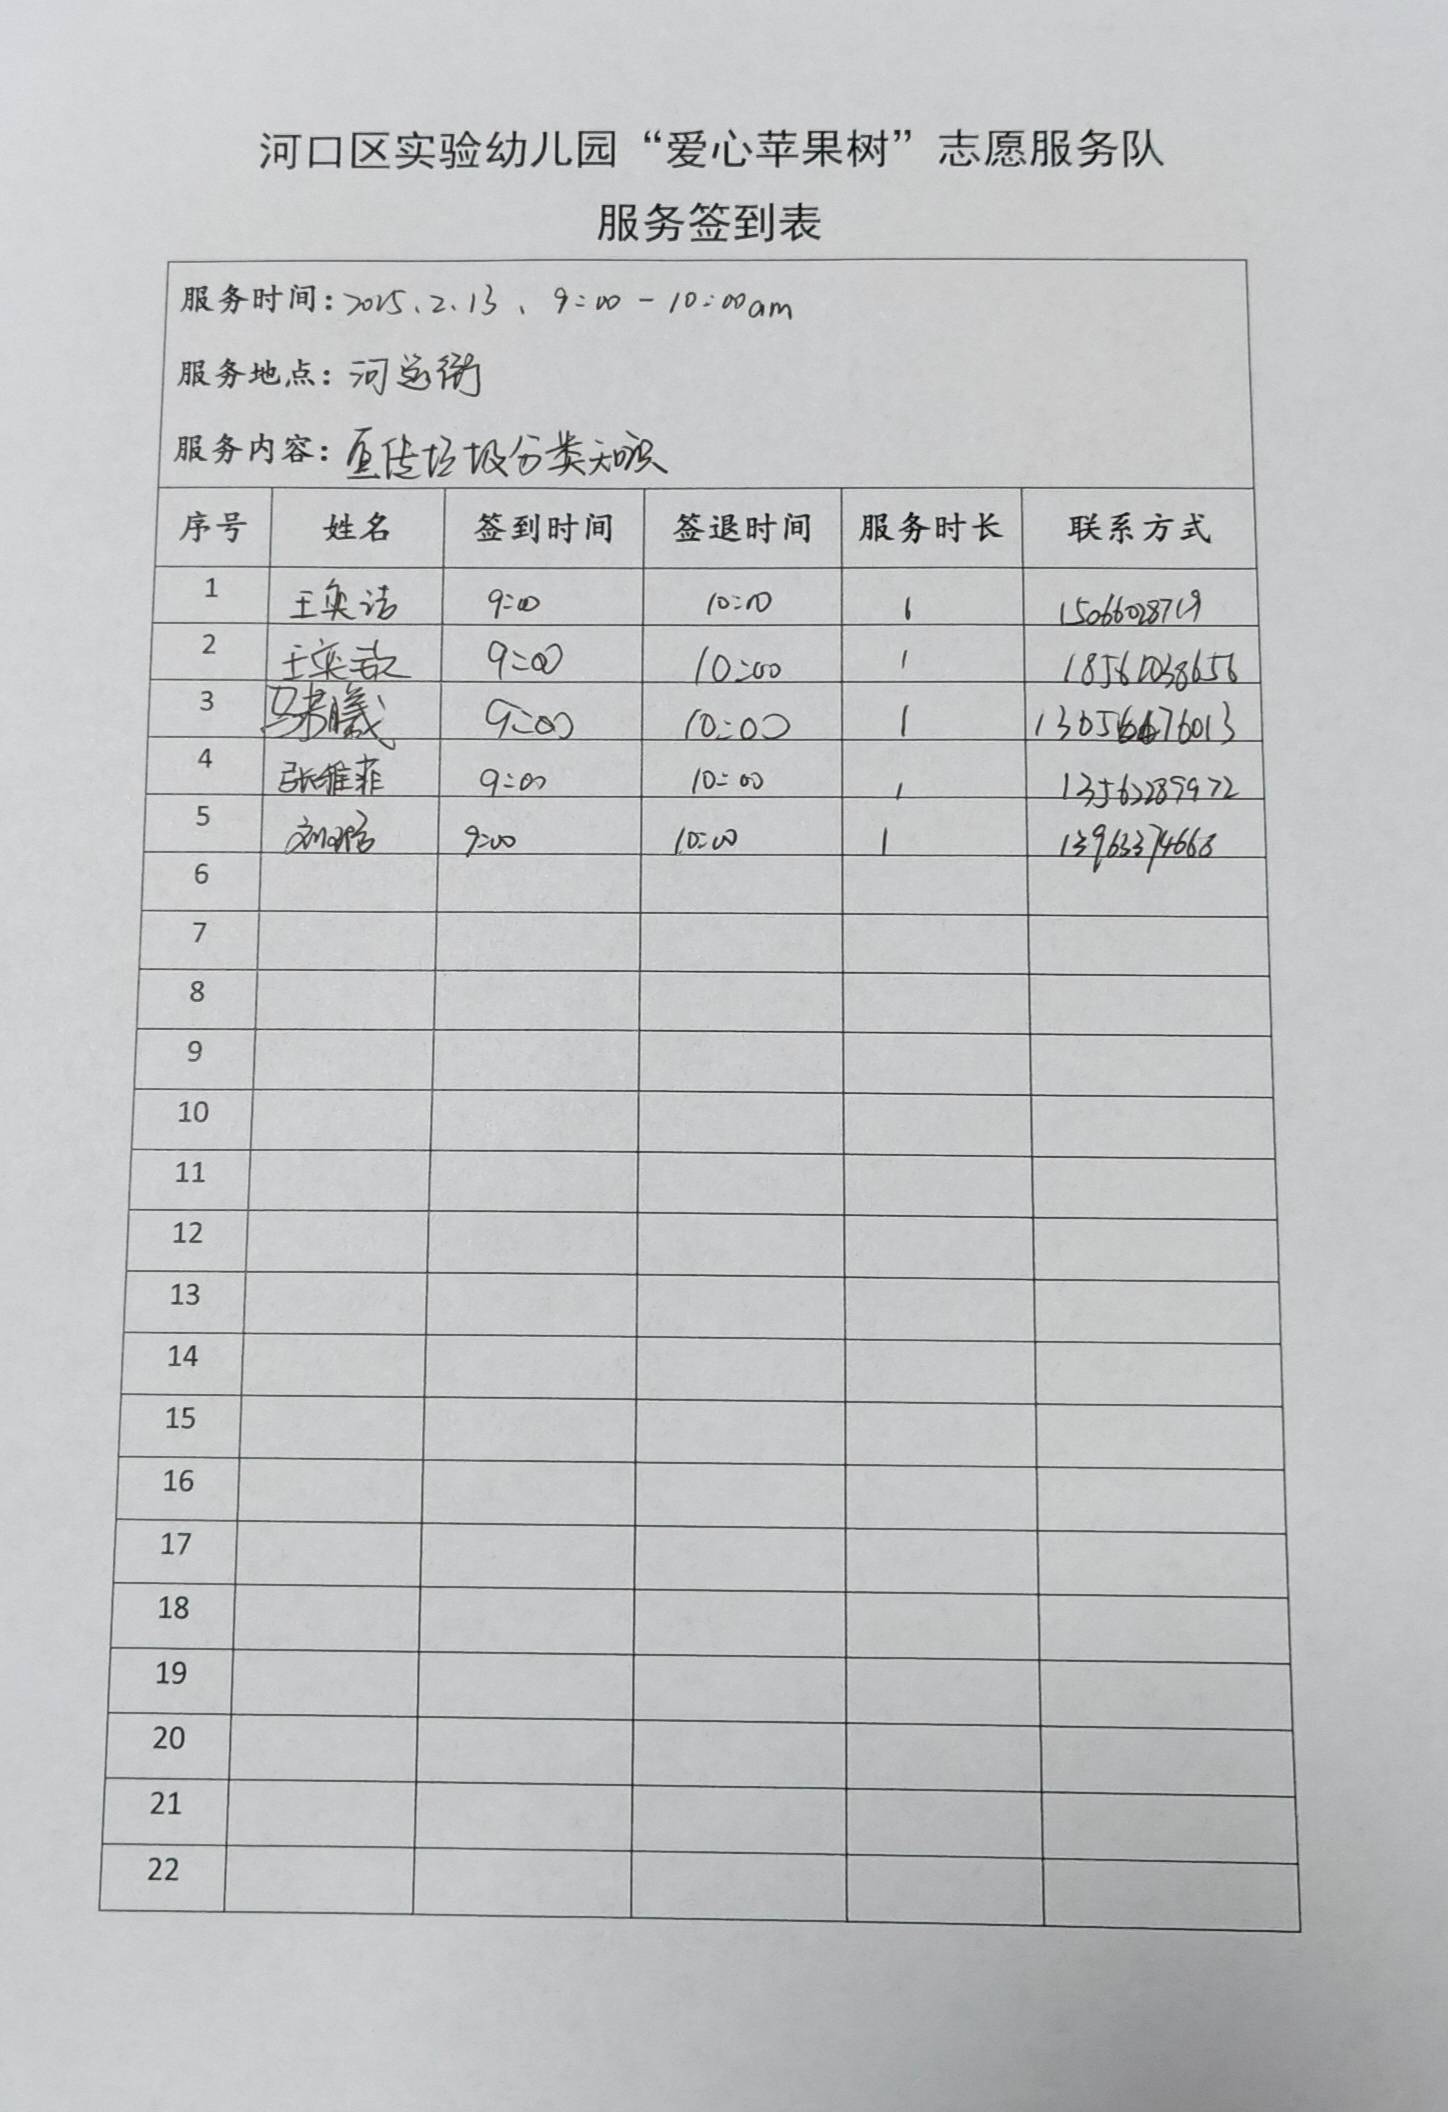 河口区实验幼儿园“爱心苹果树”志愿服务队
服务签到表
服务时间：2025.2.13、9:00-10:00am
服务地点：河运街
服务内容：宣传垃圾分类知识
序号 姓名 签到时间 签退时间 服务时长 联系方式
1 王奕洁 9:00 10:00 1 15066028719
2 王奕 9:00 10:00 1 18561038656
3 马书曦 9:00 10:00 1
4 张维菲 9:00 10:00 1 13563289972
5 9:00 10:00 1 13963374668
6
7
8
9
10
11
12
13
14
15
16
17
18
19
20
21
22